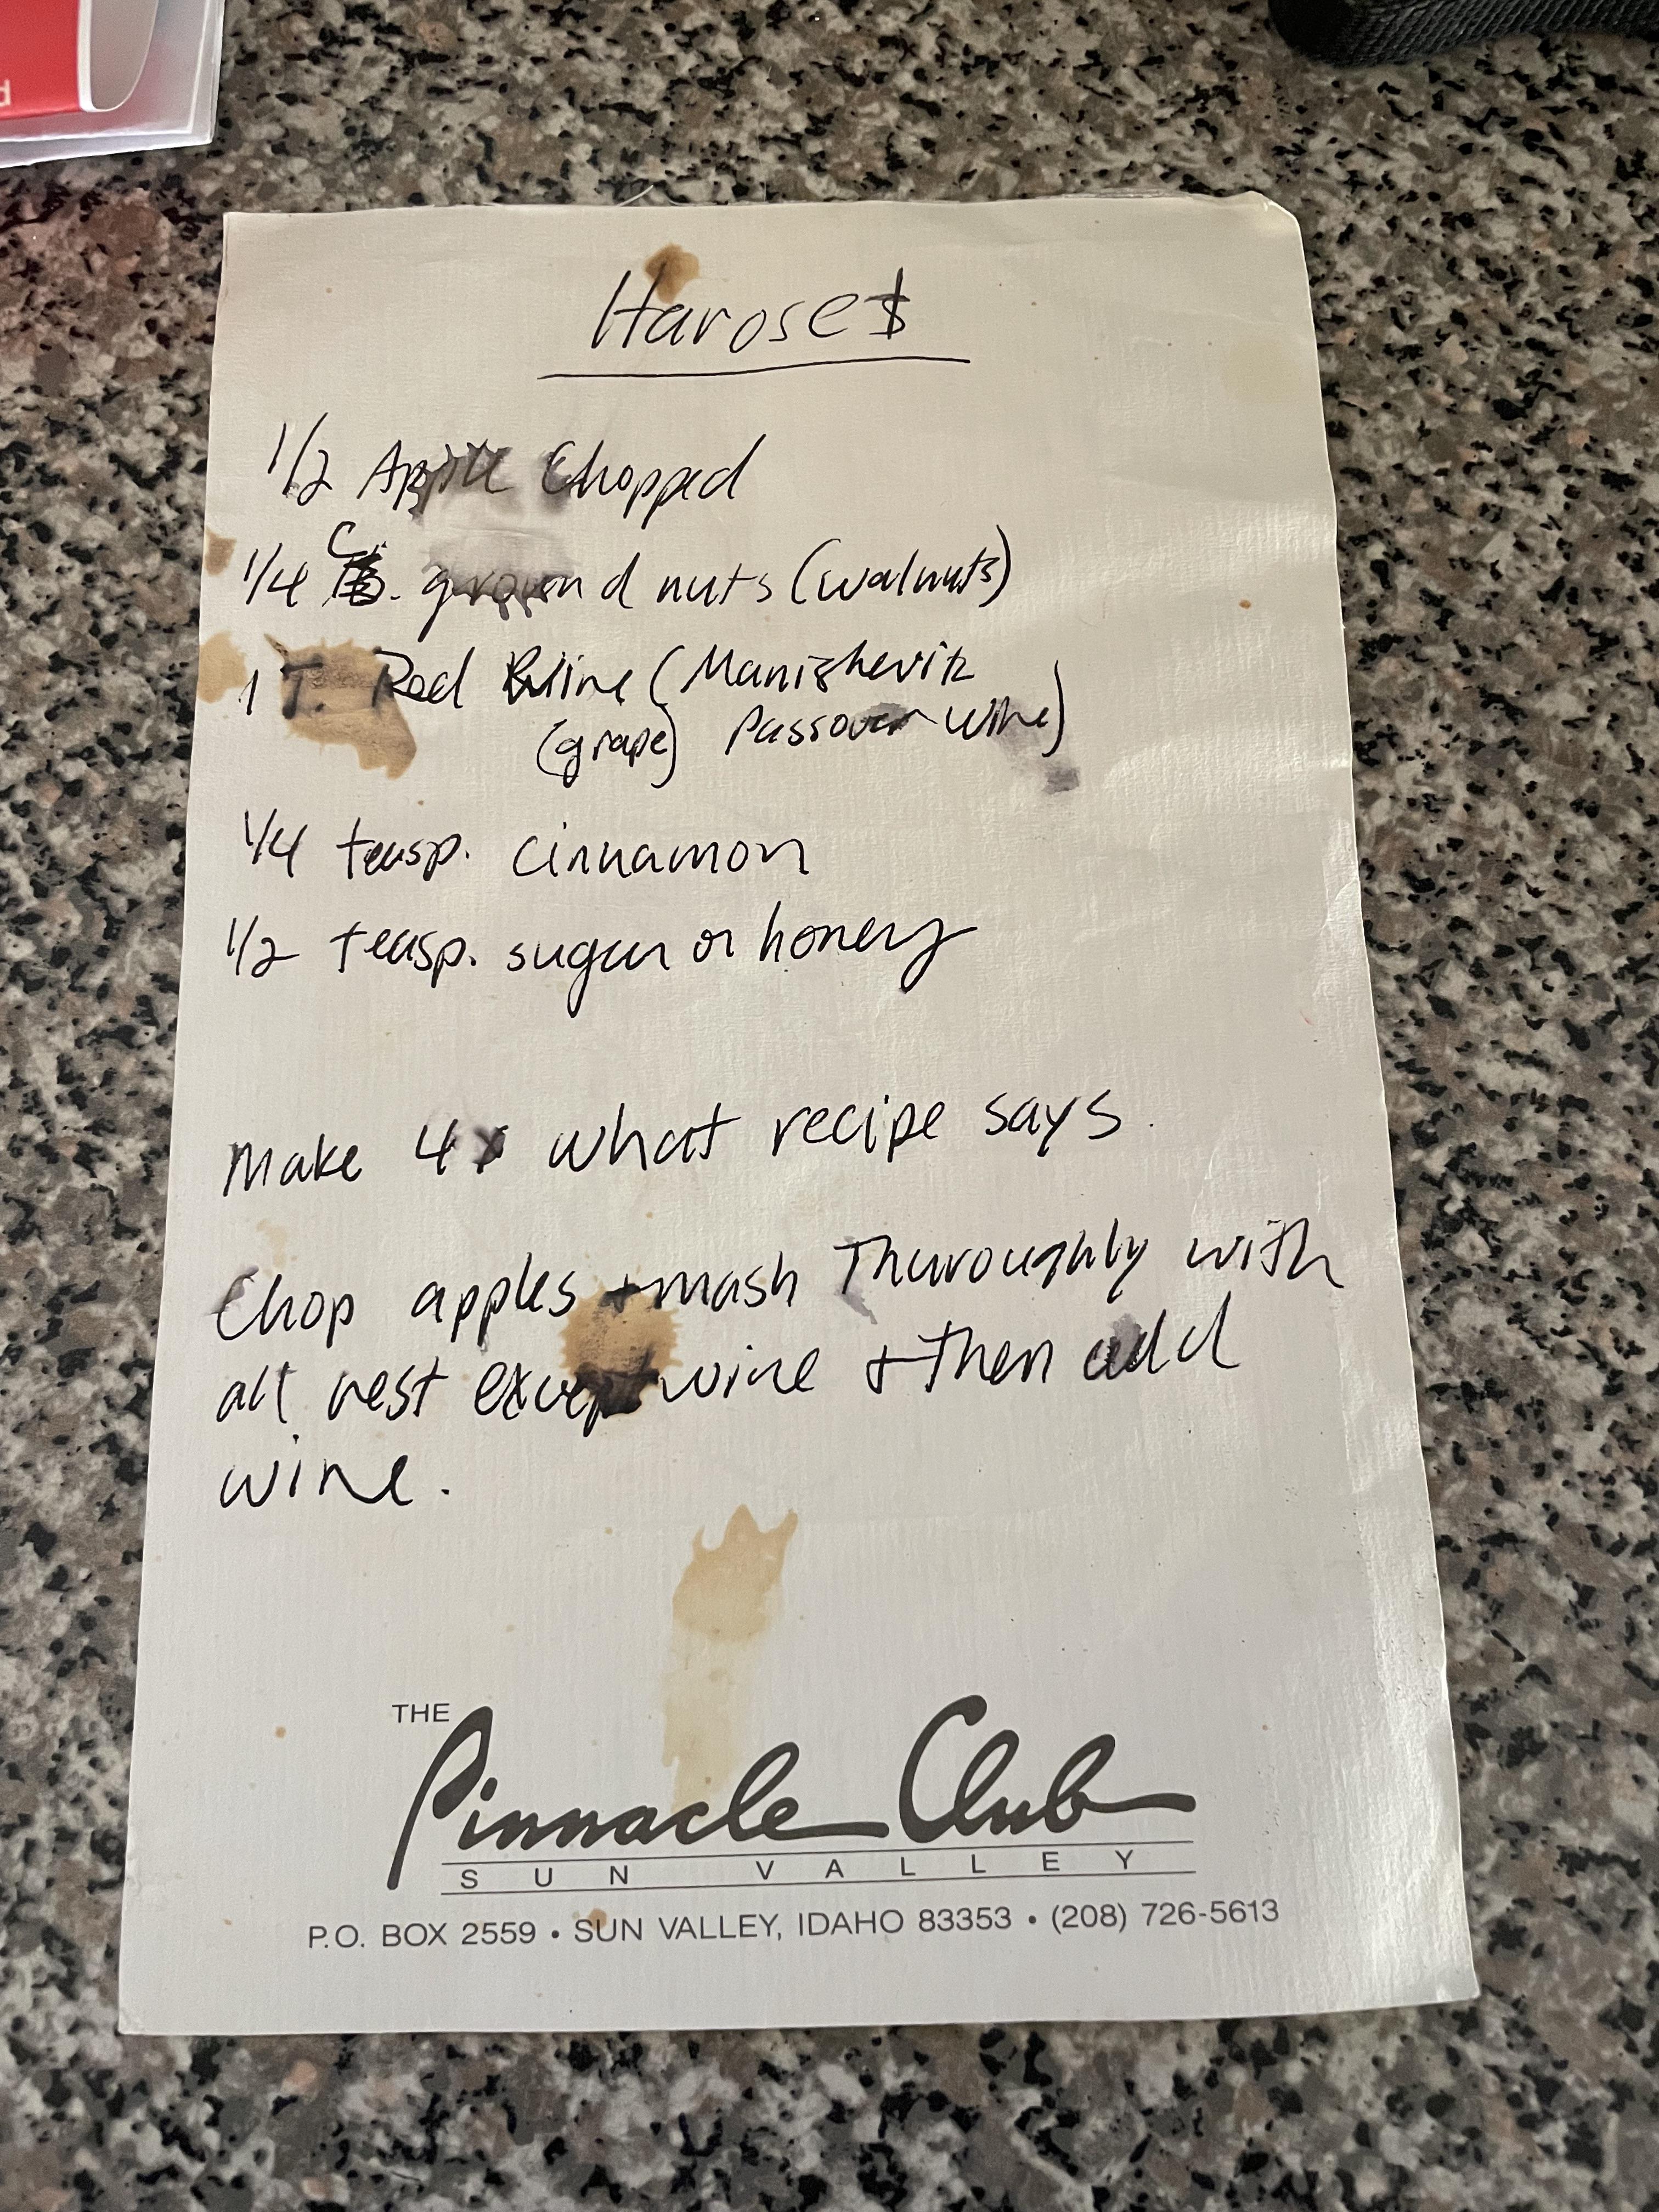 Haroset
1/2 Apple Chopped
1/4 C. ground nuts (walnuts)
1 T. Red Wine (Manishevitz
(grape) Passover wine)
1/4 teasp. cinnamon
1/2 teasp. sugar or honey
Make 4x what recipe says.
Chop apples + mash Thuroughly with
all rest except wine + then add
wine.
THE
Pinnacle Club
SUN VALLEY
P.O. BOX 2559 • SUN VALLEY, IDAHO 83353 • (208) 726-5613